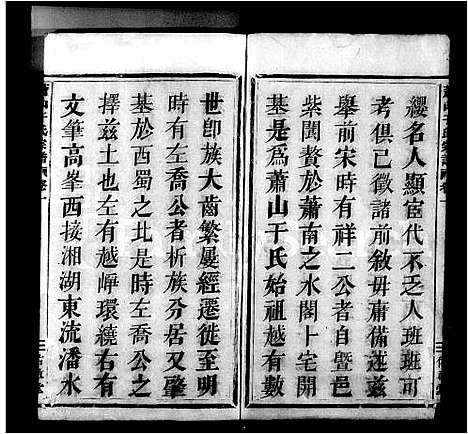 纓名人顯宦代不乏人班班可
考俱已徵諸前敘毋庸備述茲
舉前宋時有祥二公者自暨邑
紫閬贅於蕭南之水閣卜宅開
基是爲蕭山于氏始祖越有數
世卽族大齒繁屢經遷徙至明
時有左喬公者折族分居又肇
基於西蜀之北是時左喬公之
擇茲土也左有越崢環繞右有
文筆高峯西接湘湖東流潘水